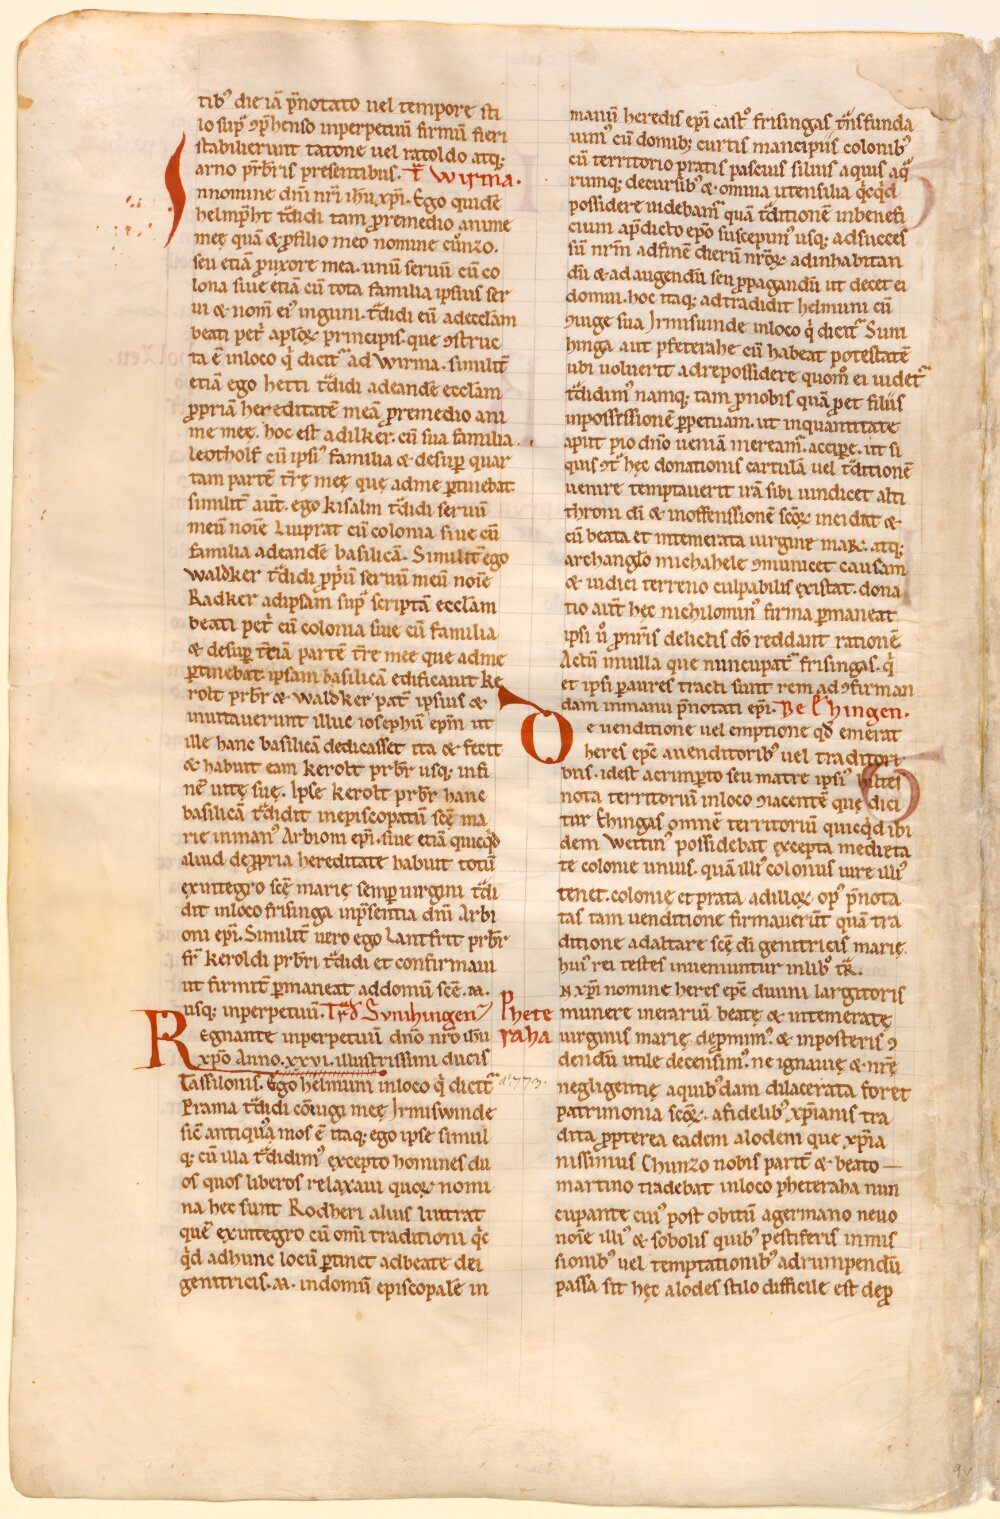 tib᷒ die iā p̄notato uel tempore sti
lo sup᷒ ꝯp̄henso inperpetuū firmū fieri
stabilierunt tatone uel ratoldo atq;
arno prb̄ris presentibus. T̄ Wirma.
Innomine dn̄i nr̄i ihū xp̄i. Ego quidē
helmp̄ht t̄didi tam ꝓremedio anime
meę quā & ꝓfilio meo nomine cůnzo.
seu etiā ꝓuxore mea. unū seruū cū co
lona siue etiā cū tota familia ipsius ser
ui & nom̄ ei᷒ inguni. t̄didi eū adecclām
beati petͥ aplōꝝ principis. que ꝯstruc
ta ē inloco q̇ dicit᷒ ad Wirma. similit̄
etiā ego hetti t̄didi adeandē ecclām
ꝓpriā hereditatē meā ꝓremedio ani
me meę. hoc est adilker. cū sua familia.
leotholf cū ipsi᷒ familia & desuꝑ quar
tam partē t̄rę meę quę adme ꝑtinebat.
similit̄ aut̄. ego kisalm t̄didi seruū
meū nōie Liuprat cū colonia siue cū
familia adeandē basilicā. Similit̄ ego
Waldker t̄didi ꝓp̄ū seruū meū nōie
Radker adipsam sup᷒ scriptā ecclām
beati petͥ cū colonia siue cū familia
& desuꝑ t̄ciā partē t̄re mee que adme
ꝑtinebat ipsam basilicā edificauit ke
rolt prb̄r & Waldker pat᷒ ipsius &
inuitauerunt illuc iosephū epm̄ ut
ille hanc basilicā dedicasset ita & fecit
& habuit eam kerolt prb̄r usq; infi
nē uitę suę. Ipse kerolt prb̄r hanc
basilicā t̄didit inepiscopatū scē ma
rie inman᷒ Arbioni epi. siue etiā quicq̇d
aliud deꝓpria hereditate habuit totū
exintegro scē marię semꝑ uirgini t̄di
dit inloco frisinga inp̄sentia dn̄i Arbi
oni epi. Similit̄ uero ego Lantfrit prb̄r
fr̄ keroldi prb̄ri t̄didi et confirmaui
ut firmit̄ ꝑmaneat addomū scē .M.
usq; inperpetuū. Trad̄ Synihingen
Phete
raha
Regnante inperpetuū dn̄o nr̄o ihū
xp̄o Anno. xxvi. illustrissimi ducis
Tassilonis. Ego helmuni inloco q̇ dicit᷒
aº 773.
Prama t̄didi cōiugi meę Irmiswinde
sic̄ antiqua mos ē itaq; ego ipse simul
q; cū illa t̄didim᷒ excepto homines du
os quos liberos relaxaui quoꝝ nomi
na hec sunt Rodheri alius liutrat
quē exintegro cū om̄i traditioni q̇c
q̇d adhunc locū ꝑtinet adbeate dei
genitricis .M. indomū episcopale in
manū heredis epi cast᷒ frisingas t̄nsfunda
uim᷒ cū domib; curtis mancipiis colonib᷒
cū territorio pratis pascuis siluis aquis aq̄
rumq; decursib᷒ & omnia utensilia q̇cq̇d
possidere uidebam᷒ quā t̄ditionē inbenefi
cium ap̄dicto epo suscepim᷒ usq; adsucces
sū nr̄m adfinē dierū nr̄oꝝ adinhabitan
dū & ad augendū seu ꝓpagandū ut decet ei
domui. hoc itaq; adtradidit helmuni cū
ꝯiuge sua Irmisuinde inloco q̇ dicit᷒ Suni
hinga aut pfeterahe cū habeat potestatē
ubi uoluerit adrepossidere quom̄ ei uidet᷒
t̄didim᷒ namq; tam ꝓnobis quā ꝓet filiis
inpossessionē ꝑpetuam. ut inquantitate
aput pio dn̄o ueniā meream᷒ accipe. ut si
quis ꝯt̄ hęc donationis cartulā uel t̄ditionē
uenire temptauerit irā sibi uindicet alti
throni di & inoffenssionē scōꝝ incidat &
cū beata et intemerata uirgine mar. atq;
archanglo michahele ꝯmunicet causam
& iudici terreno culpabilis existat. dona
tio aut̄ hęc nichilomin᷒ firma ꝑmaneat
ipsi u̇ ꝓnr̄is delictis dō reddant rationē
Actū inuilla que nuncupat᷒ frisingas. q̇
et ipsi ꝑaures tracti sunt rem ad ꝯfirman
dam inmanu p̄notati epi. De Ehingen.
De uenditione uel emptione qd̄ emerat
heres epc̄ auenditorib᷒ uel traditori
bus. idest acrimꝑto seu matre ipsi᷒ hiltes
nota territoriū inloco ꝯiacentē quę dici
tur Ehingas omnē territoriū quicq̇d ibi
dem Weitin᷒ possidebat excepta medieta
te colonie unius. quā illi᷒ colonus iure illi᷒
tenet. colonię et prata adilloꝝ op᷒ p̄nota
tas tam uenditione firmauerūt quā tra
ditione adaltare scē di genitricis marię.
hui᷒ rei testes inueniuntur inlib᷒ t̄R̄.
N xp̄i nomine heres epc̄ diuini largitoris
munere inerariū beatę & intemeratę
uirginis marię deꝓmim᷒. & inposteris ꝯ
dendū utile decensim᷒. ne ignauię & nr̄ę
negligentię aquib᷒dam dilacerata foret
patrimonia scōꝝ. afidelib᷒ xp̄ianis tra
dita ꝓpterea eadem alodem que xp̄ia
nissimus Chunzo nobis partit̄ & beato —
martino tradebat inloco pheteraha nun
cupante cui᷒ post obitū agermano neuo
nōie illi᷒ & sobolis quib᷒ pestiferis inmis
sionib᷒ uel temptationib᷒ adrumpendū
passa sit hęc alodes stilo difficile est deꝓ
9v